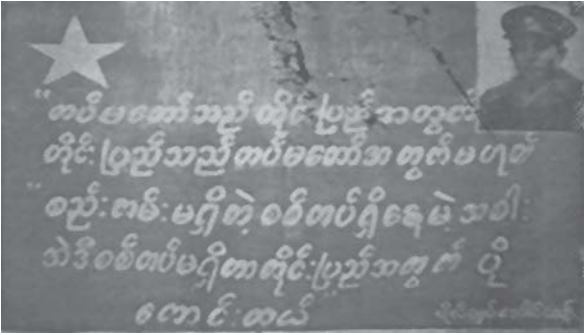 "တပ်မတော်သည် တိုင်းပြည်အတွက်
တိုင်းပြည်သည် တပ်မတော်အတွက်မဟုတ်
"စည်းကမ်းမရှိတဲ့ စစ်တပ်ရှိနေမဲ့အစား
အဲဒီစစ်တပ်မရှိတာတိုင်းပြည်အတွက် ပို
ကောင်းတယ်"